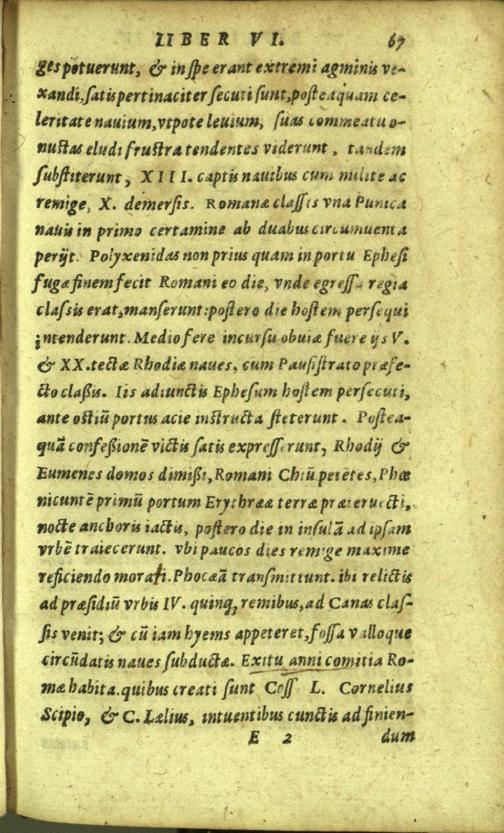 LIBER VI. 67
ges potuerunt, & in spe erant extremi agminis ve-
xandi, satis pertinaciter secuti sunt, posteaquam ce-
leritate nauium, vtpote leuium, suas commeatu o-
nustas eludi frustra tendentes viderunt, tandem
substiterunt, XIII. captis nauibus cum milite ac
remige, X. demersis. Romanæ classis vna Punica
nauis in primo certamine ab duabus circumuenta
perijt. Polyxenidas non prius quam in portu Ephesi
fugæ finem fecit Romani eo die, vnde egressa regia
classis erat, manserunt: postero die hostem persequi
intenderunt. Medio fere incursu obuiæ fuere ijs V.
& XX. tectæ Rhodiæ naues, cum Pausistrato præfe-
cto classis. Iis adiunctis Ephesum hostem persecuti,
ante ostiũ portus acie instructa steterunt. Postea-
quã confessionẽ victis satis expresserunt, Rhodij &
Eumenes domos dimissi, Romani Chiũ petẽtes, Phœ
nicuntẽ primũ portum Erythrææ terræ præteruecti,
nocte anchoris iactis, postero die in insulã ad ipsam
vrbẽ traiecerunt. vbi paucos dies remige maxime
reficiendo morati. Phocæã transmittunt. ibi relictis
ad præsidiũ vrbis IV. quinq; remibus, ad Canas clas-
sis venit; & cũ iam hyems appeteret, fossa valloque
circũdatis naues subductæ. Exitu anni comitia Ro-
mæ habita. quibus creati sunt Coss L. Cornelius
Scipio, & C. Lælius, intuentibus cunctis ad finien-
E 2 dum